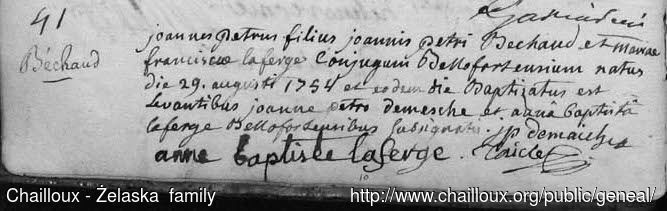 41
Béchaud
joannes petrus filius joannis petri Bechaud et mariae
franciscae laferge Conjugum Bellofortensium natus
die 29. augusti 1754 et eodem die Baptizatus est
Levantibus joanne petro demesche et annâ baptistâ
laferge Bellofortensibus subsignatis. jp demaiche
anne baptiste laferge.
Chailloux - Żelaska family
http://www.chailloux.org/public/geneal/